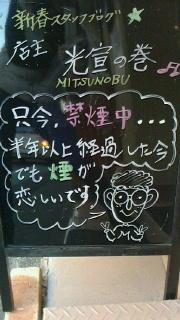 新春スタッフブログ★
店主
光宣の巻
MITSUNOBU
只今,禁煙中...
半年以上経過した今
でも煙が
恋しいです